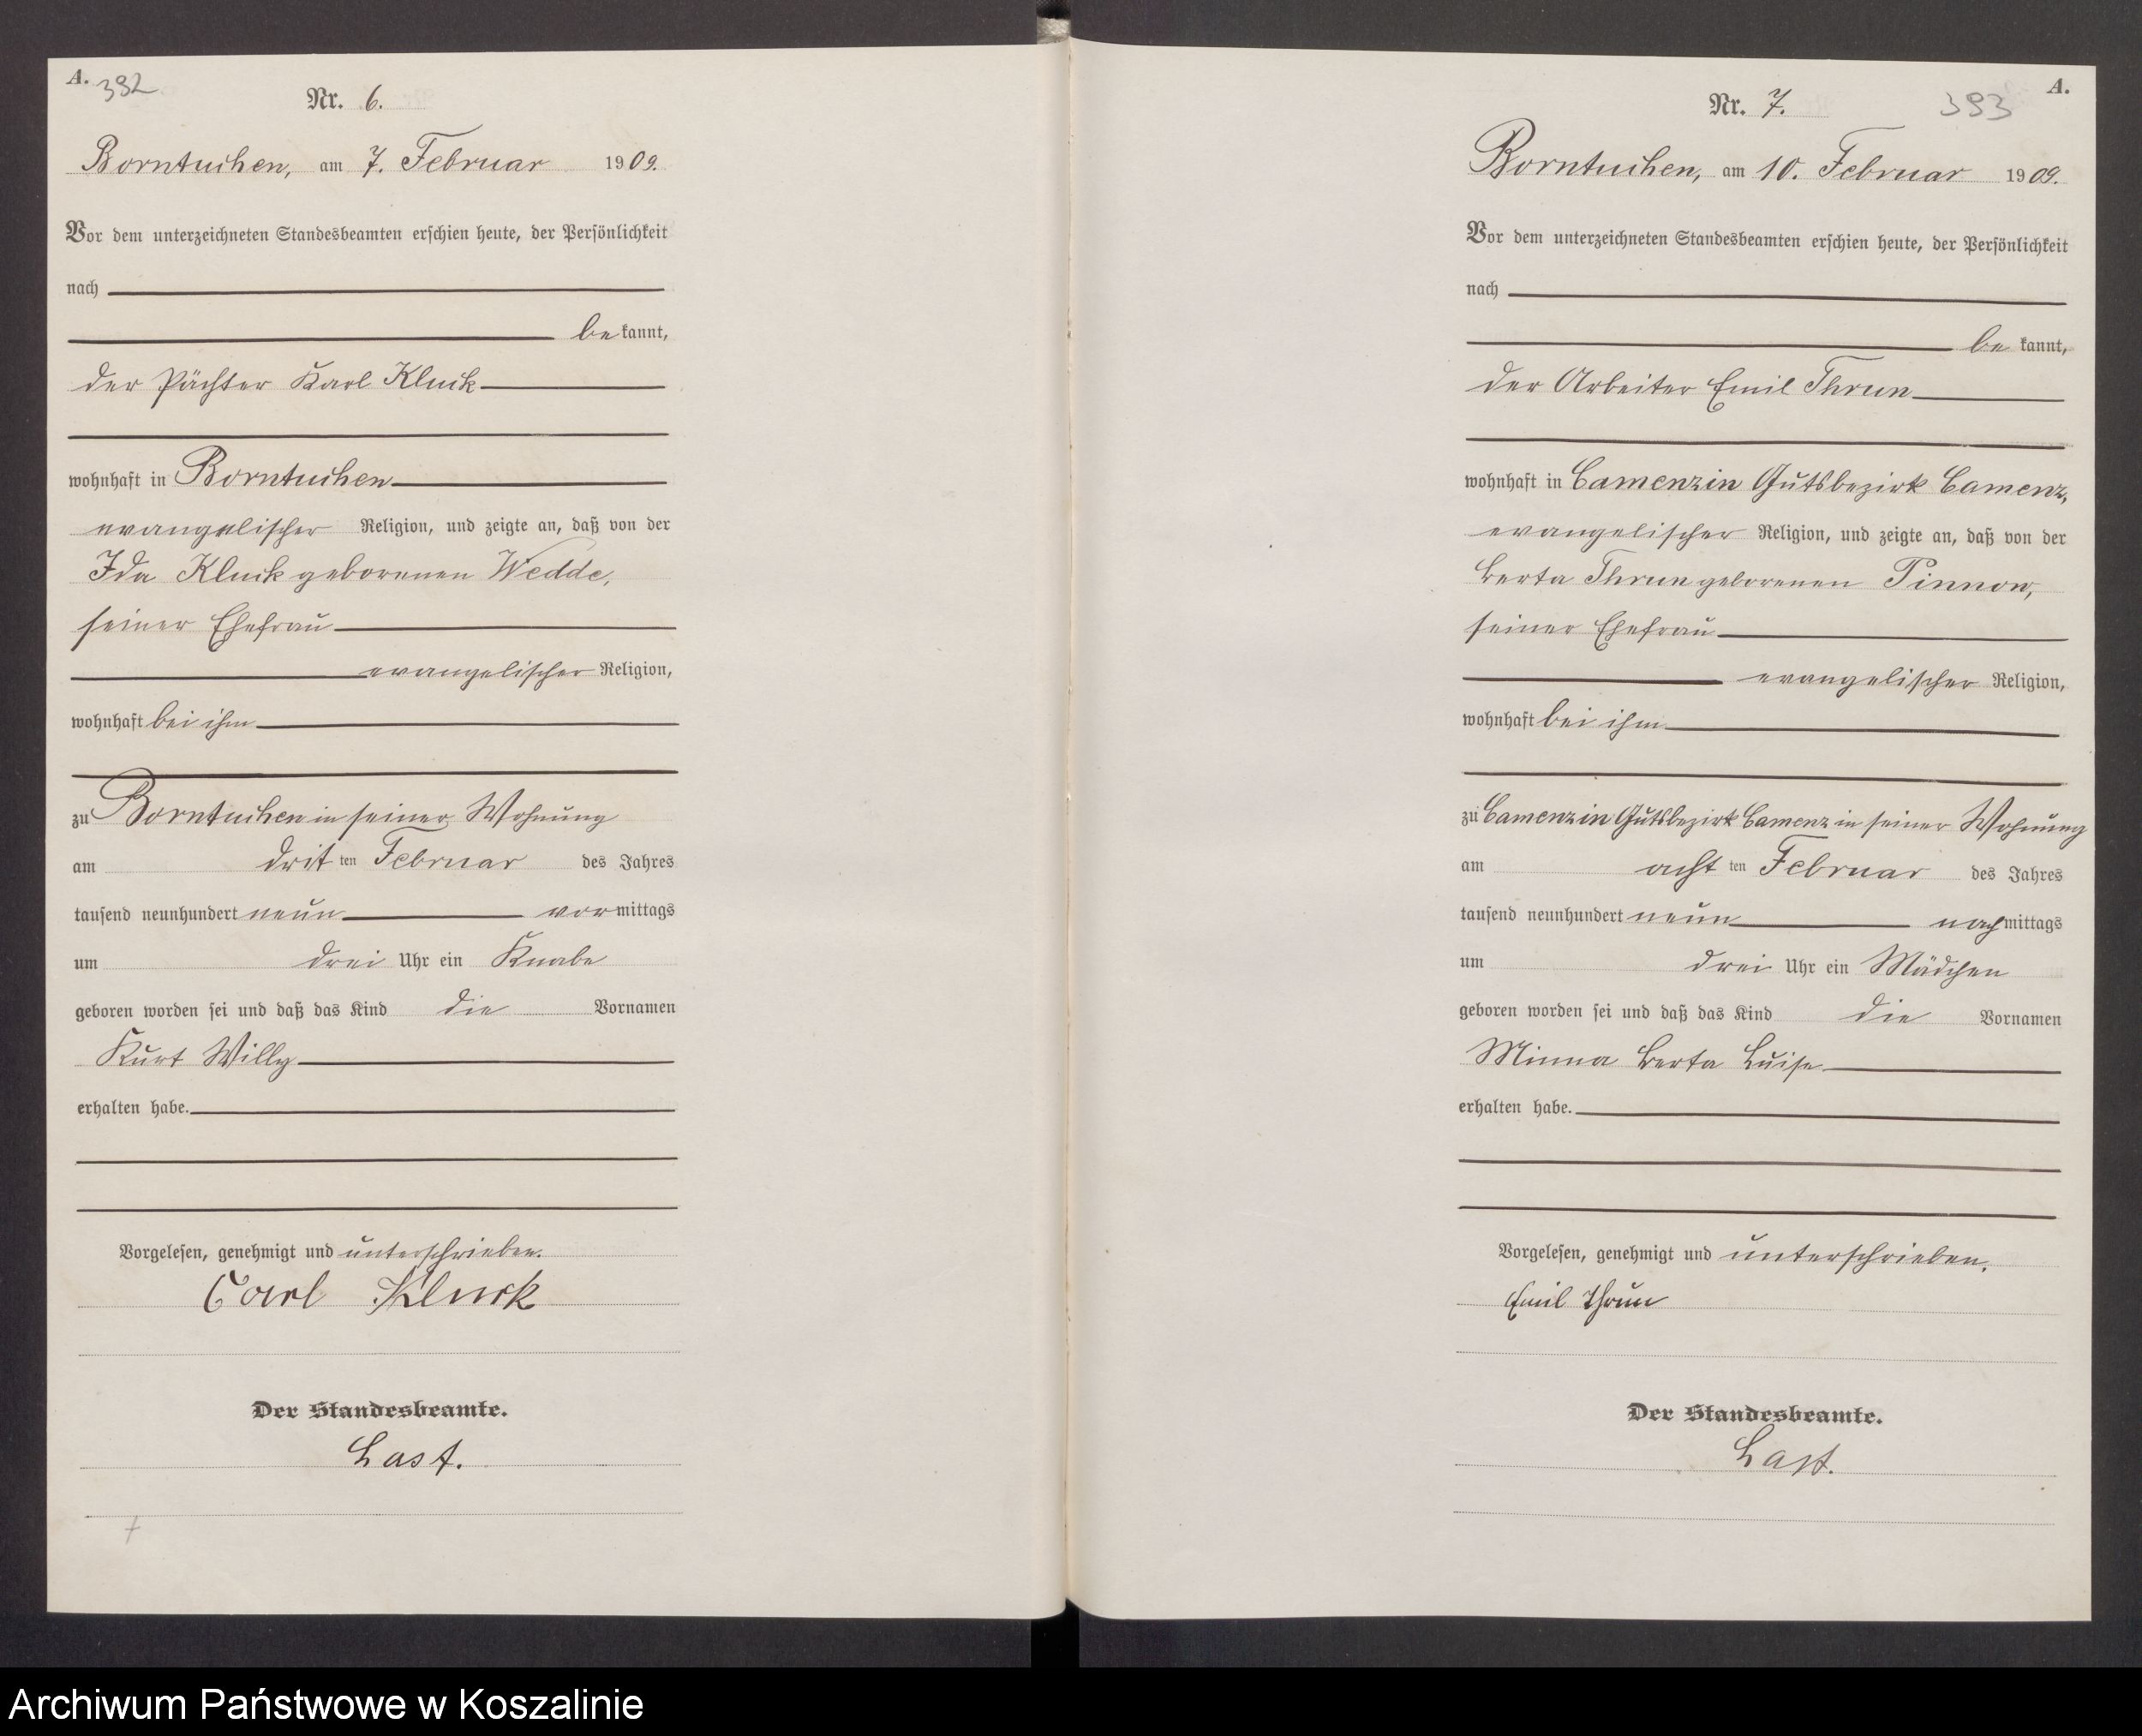 A. 392
Nr. 6.
Borntuchen, am 7. Februar 1909.
Vor dem unterzeichneten Standesbeamten erschien heute, der Persönlichkeit
nach
bekannt,
der Pächter Karl Kluck
wohnhaft in Borntuchen
evangelischer Religion, und zeigte an, daß von der
Ida Kluck geborenen Wedde,
seiner Ehefrau
evangelischer Religion,
wohnhaft bei ihm
zu Borntuchen in seiner Wohnung
am dritten Februar des Jahres
tausend neunhundert neun vormittags
um drei Uhr ein Knabe
geboren worden sei und daß das Kind die Vornamen
Kurt Willy
erhalten habe.
Vorgelesen, genehmigt und unterschrieben.
Carl Kluck
Der Standesbeamte.
Last.
A.
Nr. 7. 393
Borntuchen, am 10. Februar 1909.
Vor dem unterzeichneten Standesbeamten erschien heute, der Persönlichkeit
nach
bekannt,
der Arbeiter Emil Thrun
wohnhaft in Camenzin Gutsbezirk Camenz,
evangelischer Religion, und zeigte an, daß von der
Berta Thrun geborenen Pinnow,
seiner Ehefrau
evangelischer Religion,
wohnhaft bei ihm
zu Camenzin Gutsbezirk Camenz in seiner Wohnung
am achtten Februar des Jahres
tausend neunhundert neun nachmittags
um drei Uhr ein Mädchen
geboren worden sei und daß das Kind die Vornamen
Minna Berta Luise
erhalten habe.
Vorgelesen, genehmigt und unterschrieben.
Emil Thrun
Der Standesbeamte.
Last.
Archiwum Państwowe w Koszalinie